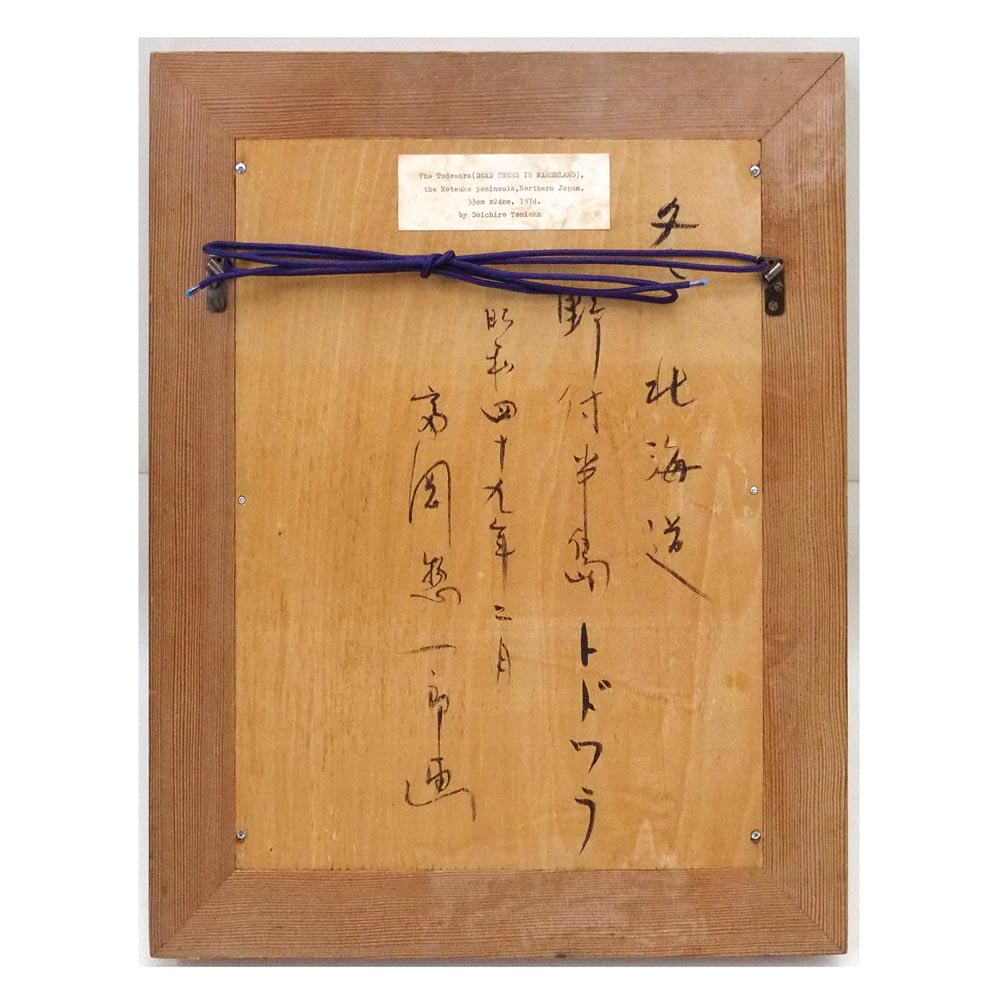 The Todowara(DEAD TREES IN MARSHLAND),
the Notsuke peninsula,Northern Japan.
33cm x24cm, 1974.
by Soichiro Tomioka
冬 北海道
野付半島 トドワラ
昭和四十九年二月
富岡惣一郎画